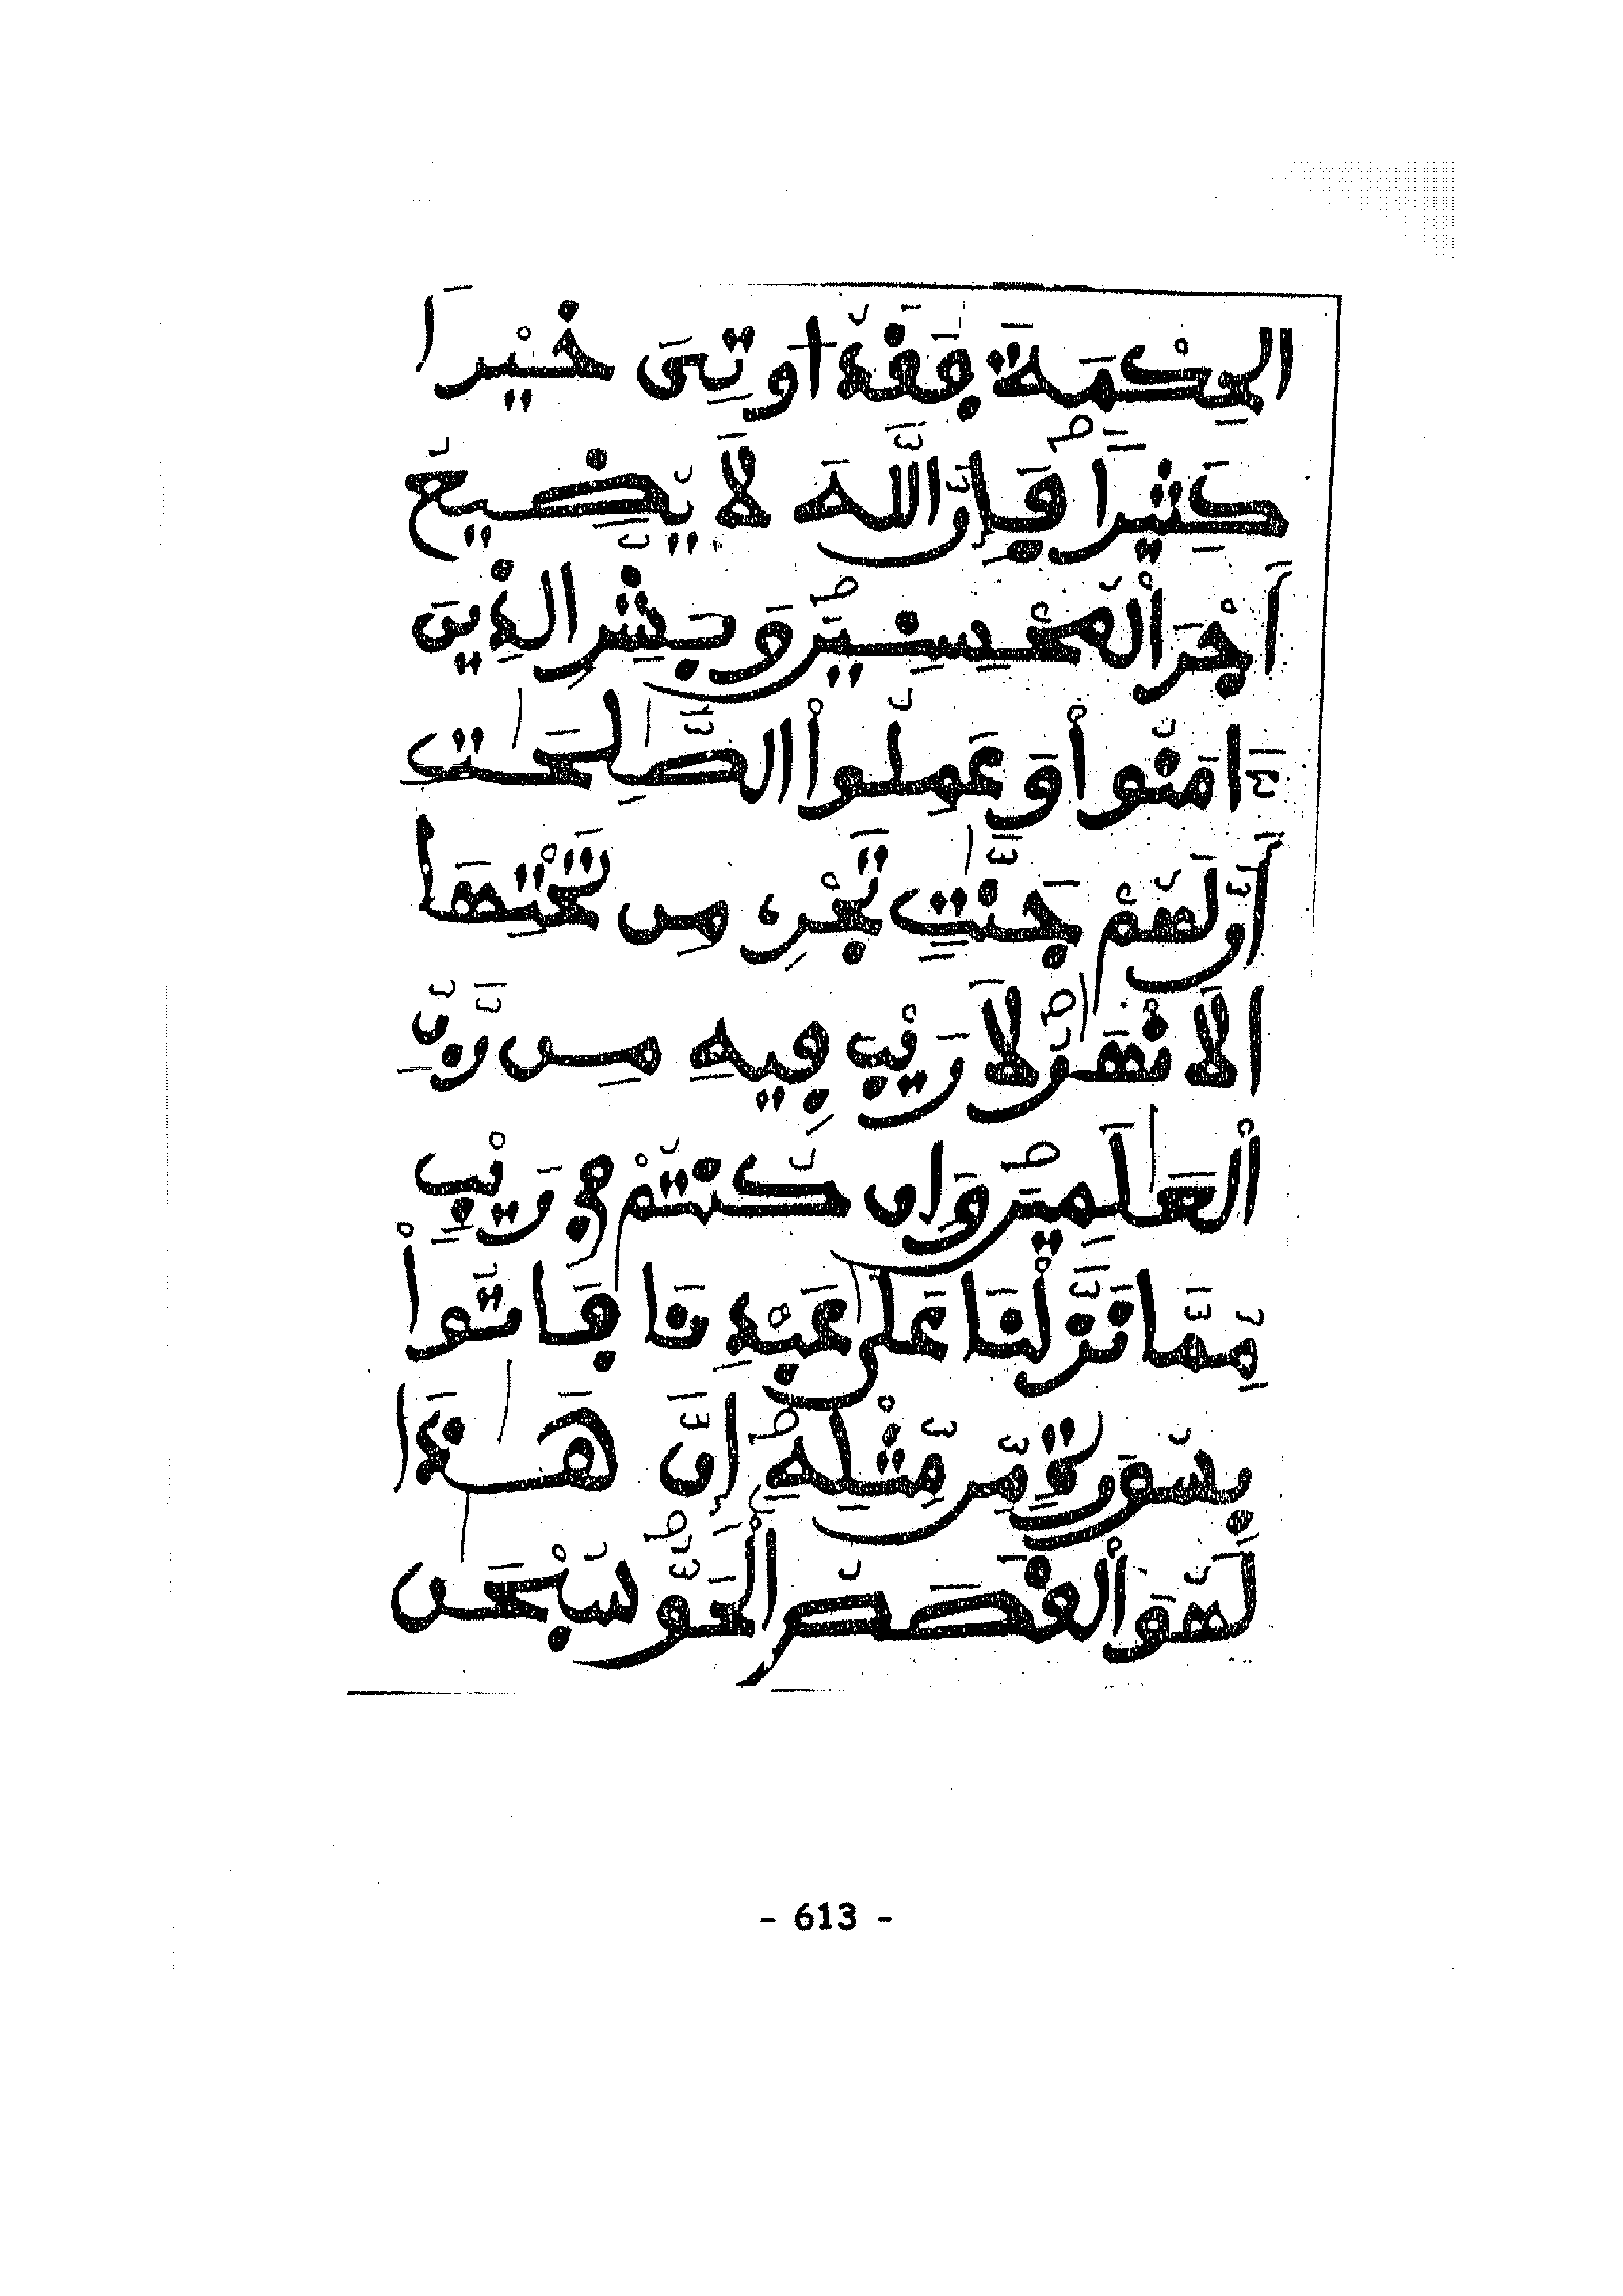 الحِكْمَةَ فَقَدُ اوتِىَ خَيْراً
كَثِيراً فَإِنَّ اللَّهَ لَا يُضِيعُ
أَجْرَ ألْمُحْسِنِينَ وَبَشِّرِ الذِينَ
ءَامَنُوا أْوَعَمِلُوا أْالصَّلِحَتِ
أَنَّ لَهُمْ جَنَّتٍ تَجْرِے مِن تَحْتِهَا
الَانْهَرُ لَا رَيْبَ فِيهِ مِن رَّبِّ
ألْعَلَمِينَ وَإِن كُنتُمْ فِي رَيْبٍ
مِّمَّا نَزَّلْنَا عَلَى عَبْدِنَا فَاتُوا أْ
بِسُورَةٍ مِّن مِّثْلِهِ إِنَّ هَذَا
لَهُوَ ألْقَصَصُ ألْحَقُّ سُبْحَنَ
- 613 -